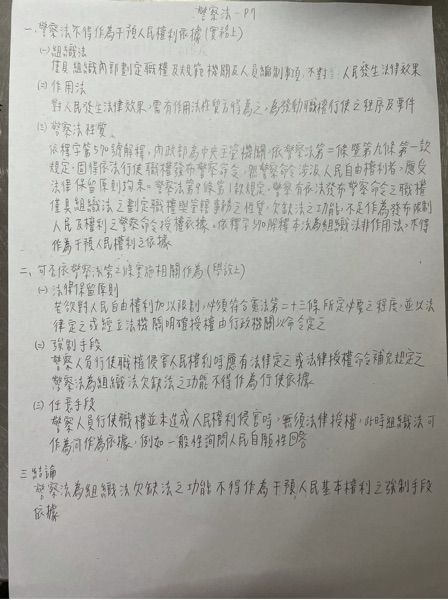 警察法-P7
一、警察法不得作為干預人民權利依據(實務上)
㈠組織法
僅具組織內部劃定職權及規範機關及人員編制事項,不對 人民發生法律效果
㈡作用法
對人民發生法律效果,需有作用法性質方得為之,為發動職權行使之程序及要件
㈢警察法性質
依釋字第570號解釋,內政部為中央主管機關,依警察法第二條暨第九條第一款
規定,固得依法行使職權發布警察命令,然警察命令涉及人民自由權利者,應受
法律保留原則拘束。警察法第9條第1款規定,警察有依法發布警察命令之職權
僅具組織法之劃定職權與管轄事務之性質,欠缺法之功能,不足作為發布限制
人民及權利之警察命令授權依據。依釋字570解釋本法為組織法非作用法,不得
作為干預人民權利之依據
二、可否依警察法第2條實施相關作為(學說上)
㈠法律保留原則
若欲對人民自由權利加以限制,必須符合憲法第二十三條所定必要之程度,並以法
律定之或經立法機關明確授權由行政機關以命令定之
㈡強制手段
警察人員行使職權侵害人民權利時應有法律定之或法律授權命令補充規定之
警察法為組織法欠缺法之功能不得作為行使依據
㈢任意手段
警察人員行使職權並未造成人民權利侵害時,無須法律授權,此時組織法可
作為何作為依據,例如一般性詢問人民自願性回答
三、結論
警察法為組織法欠缺法之功能不得作為干預人民基本權利之強制手段
依據